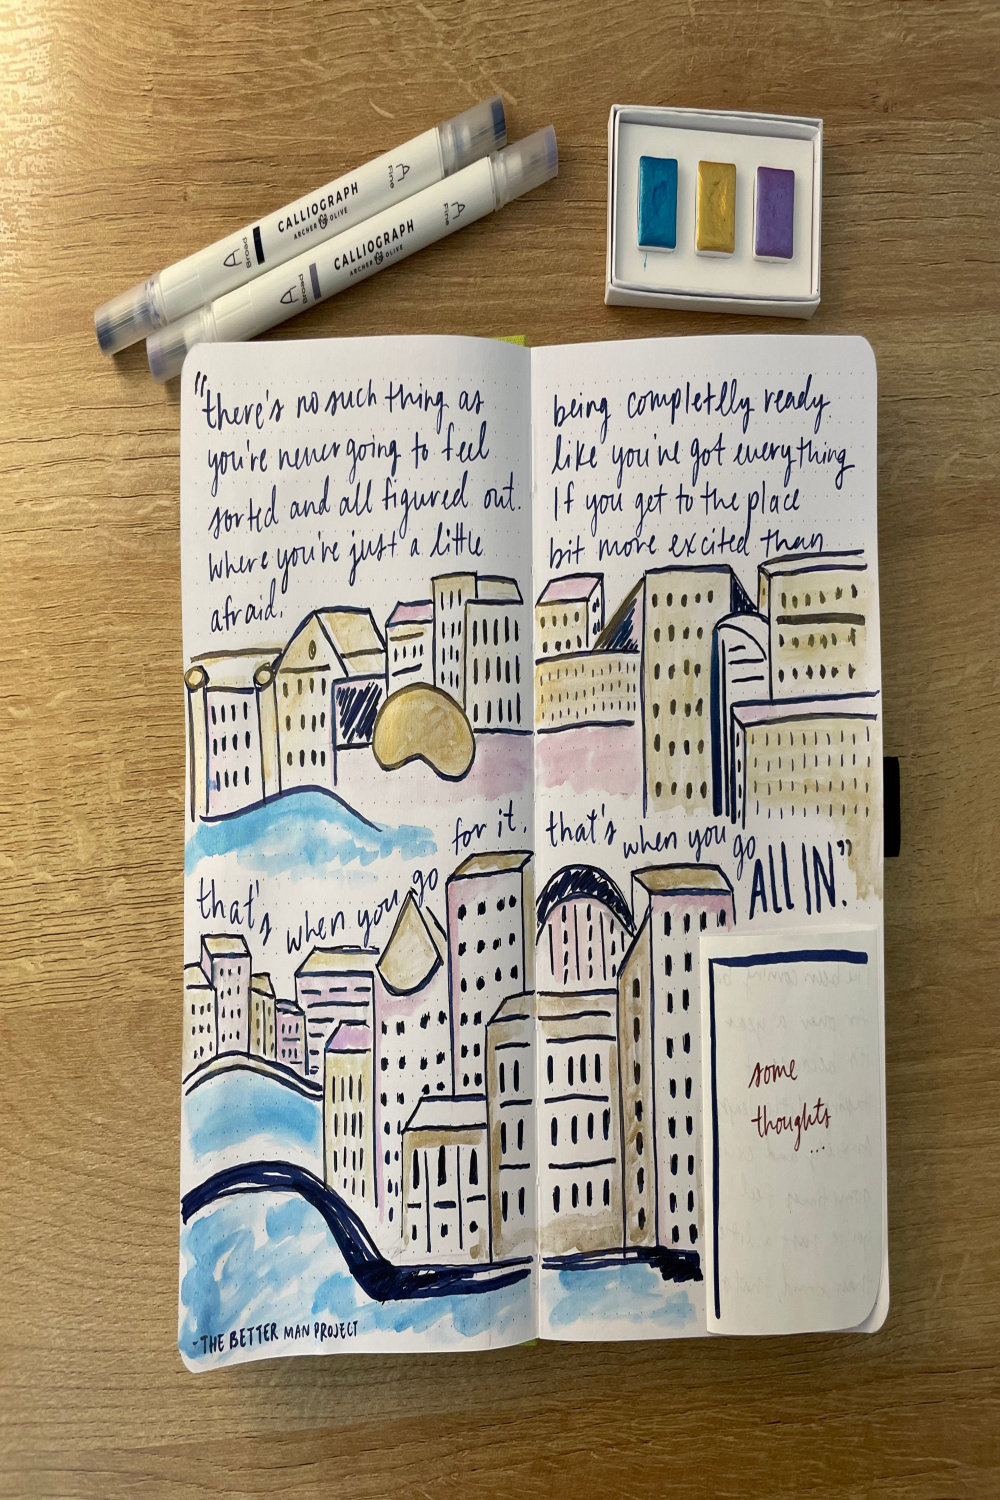 Fine
CALLIOGRAPH
ARCHER & OLIVE
Broad
Fine
CALLIOGRAPH
ARCHER & OLIVE
Broad
"there's no such thing as being completlly ready
you're never going to feel like you've got everything
sorted and all figured out. If you get to the place
where you're just a little bit more excited than
afraid,
for it, that's when you go
that's when you go
ALL IN."
some
thoughts
...
-THE BETTER MAN PROJECT